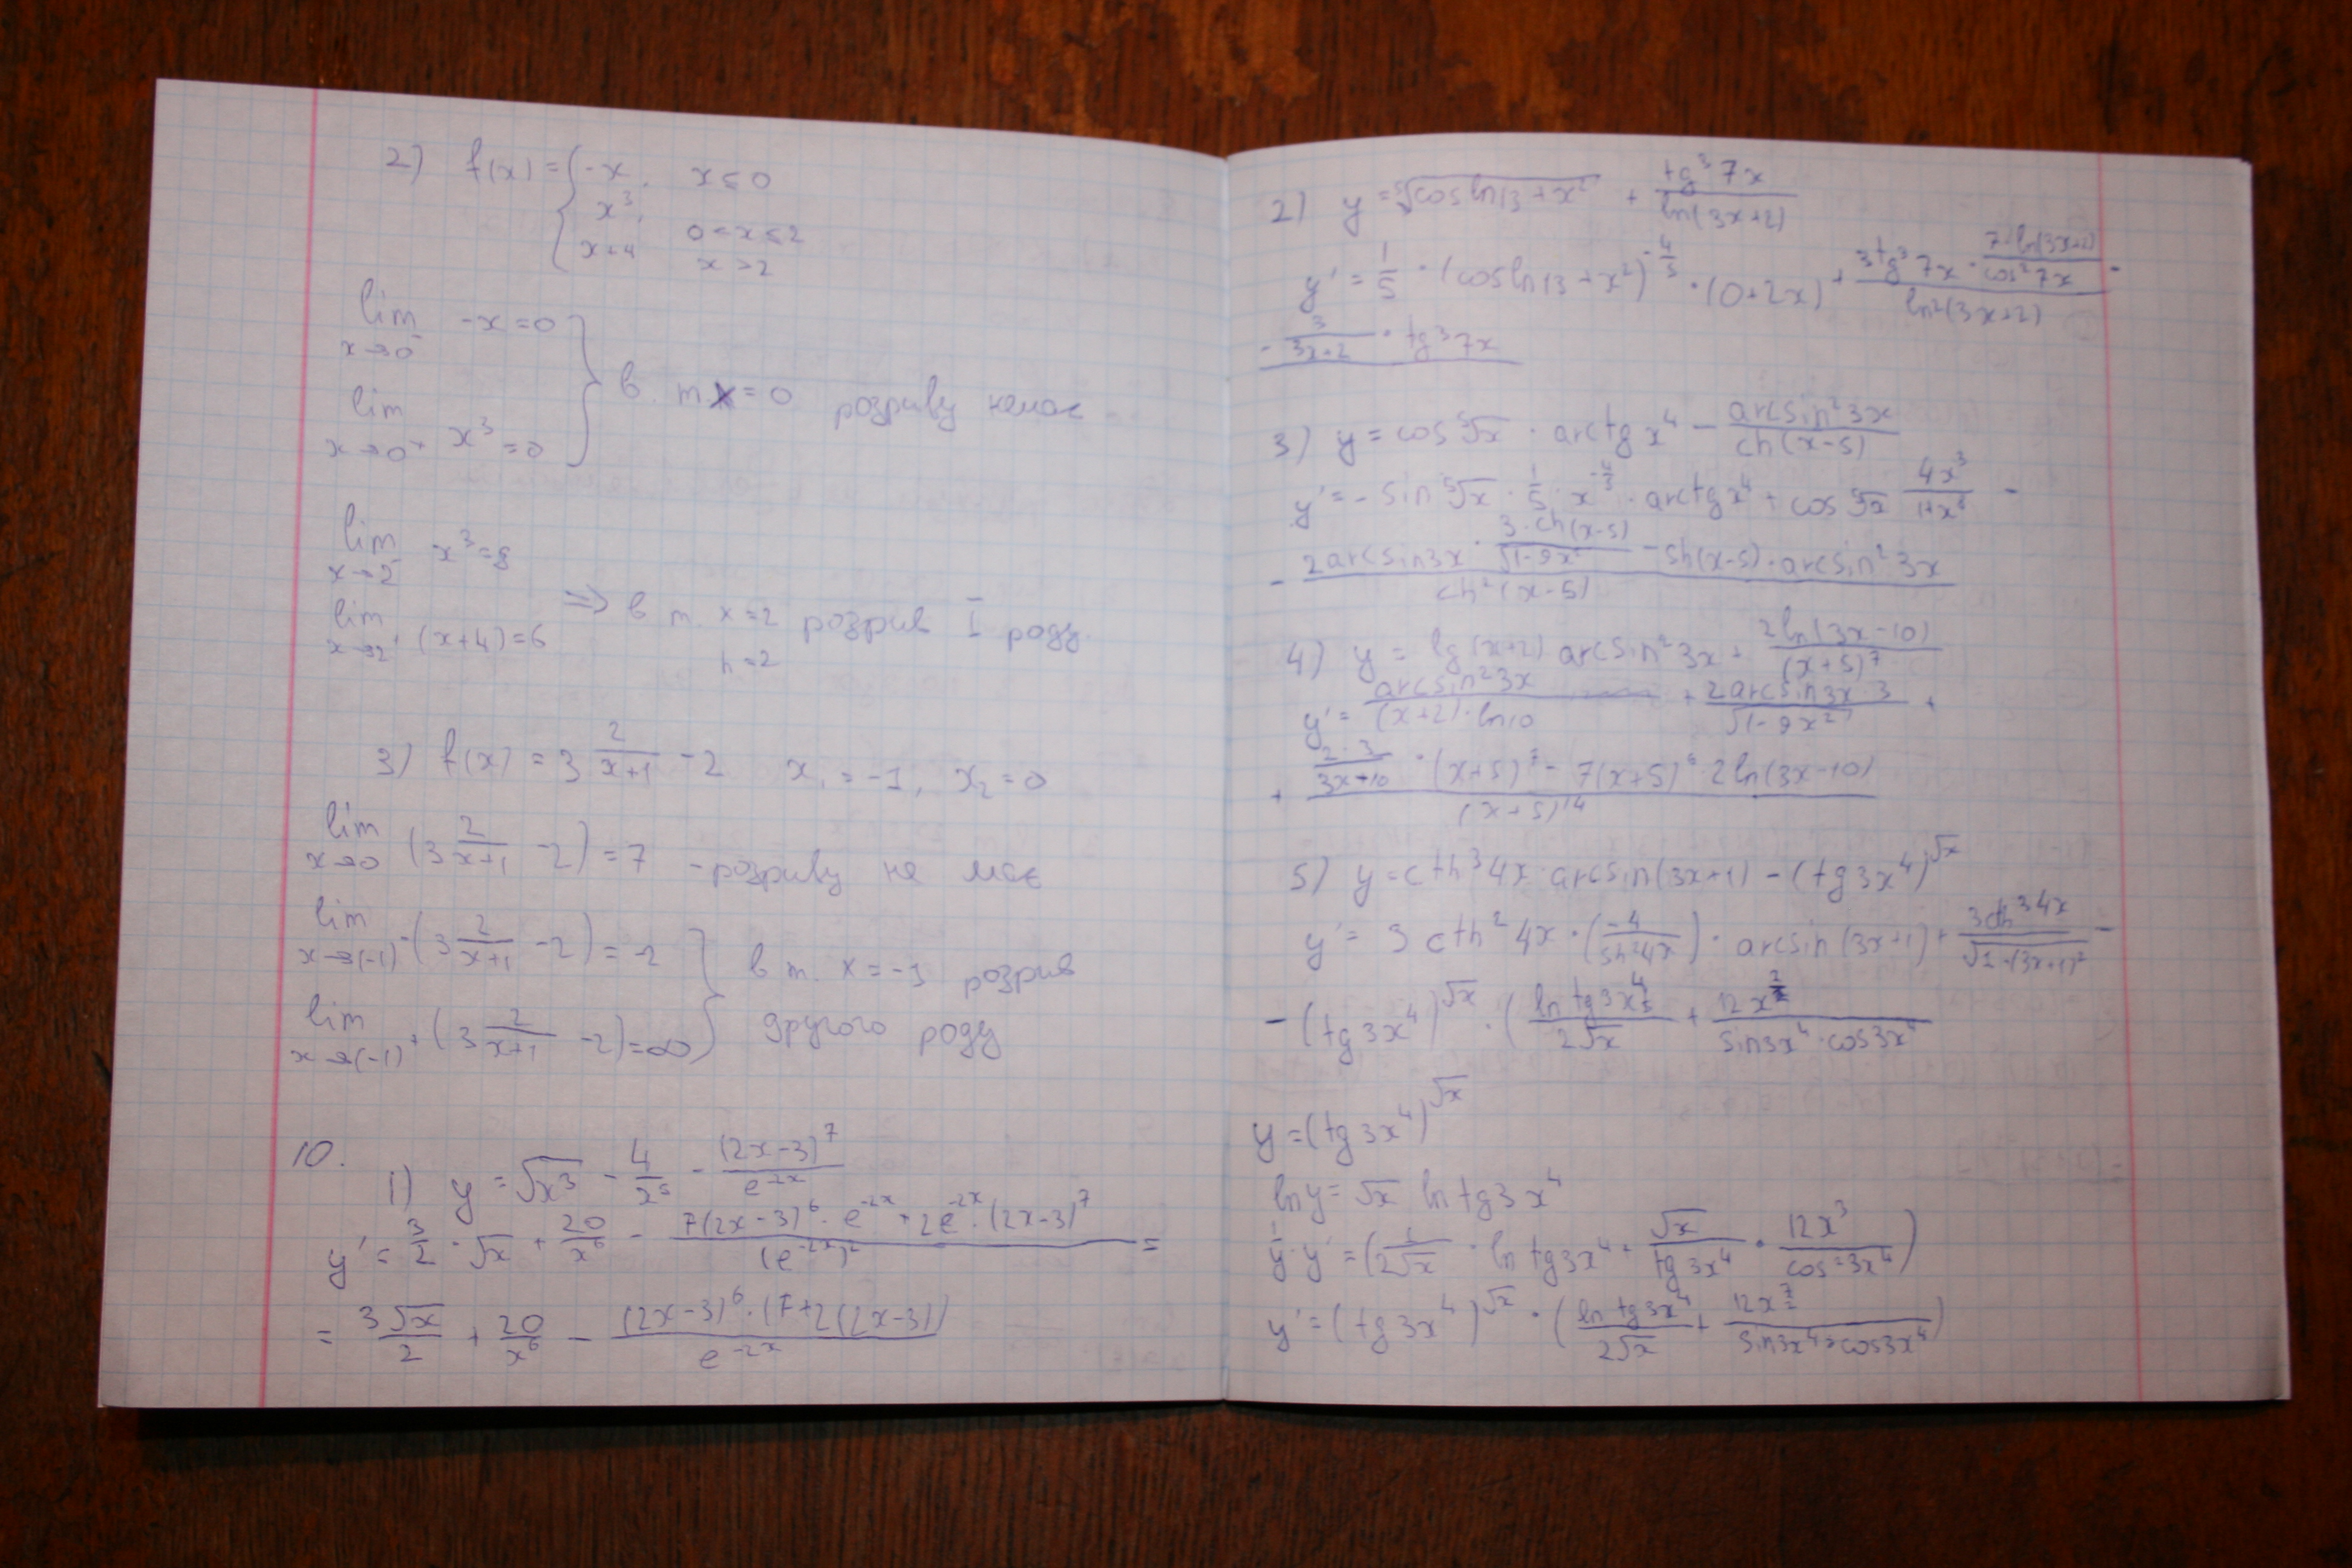 2) f(x) = { -x, x ≤ 0
x³, 0 < x ≤ 2
x+4 x > 2
lim x→0⁻ -x = 0
lim x→0⁺ x³ = 0 } в т. x = 0 розриву немає
lim x→2⁻ x³ = 8
lim x→2⁺ (x+4) = 6 ⇒ в т. x = 2 розрив I роду.
h = 2
3) f(x) = 3^(2/(x+1)) - 2 x₁ = -1, x₂ = 0
lim x→0 (3^(2/(x+1)) - 2) = 7 - розриву не має
lim x→(-1)⁻ (3^(2/(x+1)) - 2) = -2
lim x→(-1)⁺ (3^(2/(x+1)) - 2) = ∞ } в т. x = -1 розрив
другого роду
10.
1) y = √x³ - 4/x⁵ - (2x-3)⁷/e^(-2x)
y' = 3/2 · √x + 20/x⁶ - (7(2x-3)⁶ · e^(-2x) + 2e^(-2x) · (2x-3)⁷)/(e^(-2x))² =
= 3√x/2 + 20/x⁶ - (2x-3)⁶ · (7+2(2x-3))/e^(-2x)
2) y = ⁵√(cos ln13 + x²) + tg³7x/ln(3x+2)
y' = 1/5 · (cos ln13 + x²)^(-4/5) · (0+2x) + (3tg³7x · 7·ln(3x+2)/cos²7x -)/ln²(3x+2)
- 3/(3x+2) · tg³7x
3) y = cos ⁵√x · arctg x⁴ - arcsin²3x/ch(x-5)
y' = - sin ⁵√x · 1/5 · x^(-4/5) · arctg x⁴ + cos ⁵√x 4x³/(1+x⁸) -
- (2arcsin3x · 3·ch(x-5)/√(1-9x²) - sh(x-5) · arcsin²3x)/ch²(x-5)
4) y = lg(x+2) arcsin²3x + 2ln(3x-10)/(x+5)⁷
y' = arcsin²3x/((x+2)·ln10) + 2arcsin3x·3/√(1-9x²) +
+ (2·3/(3x-10) · (x+5)⁷ - 7(x+5)⁶ 2ln(3x-10))/(x+5)¹⁴
5) y = cth³4x · arcsin(3x+1) - (tg3x⁴)^√x
y' = 3cth²4x · (-4/sh²4x) · arcsin(3x+1) + 3cth³4x/√(1-(3x+1)²) -
- (tg3x⁴)^√x · (ln tg3x⁴/2√x + 12x^(7/2)/(sin3x⁴·cos3x⁴)
y = (tg3x⁴)^√x
ln y = √x ln tg3x⁴
1/y · y' = (1/2√x · ln tg3x⁴ + √x/tg3x⁴ · 12x³/cos²3x⁴)
y' = (tg3x⁴)^√x · (ln tg3x⁴/2√x + 12x^(7/2)/(sin3x⁴·cos3x⁴))